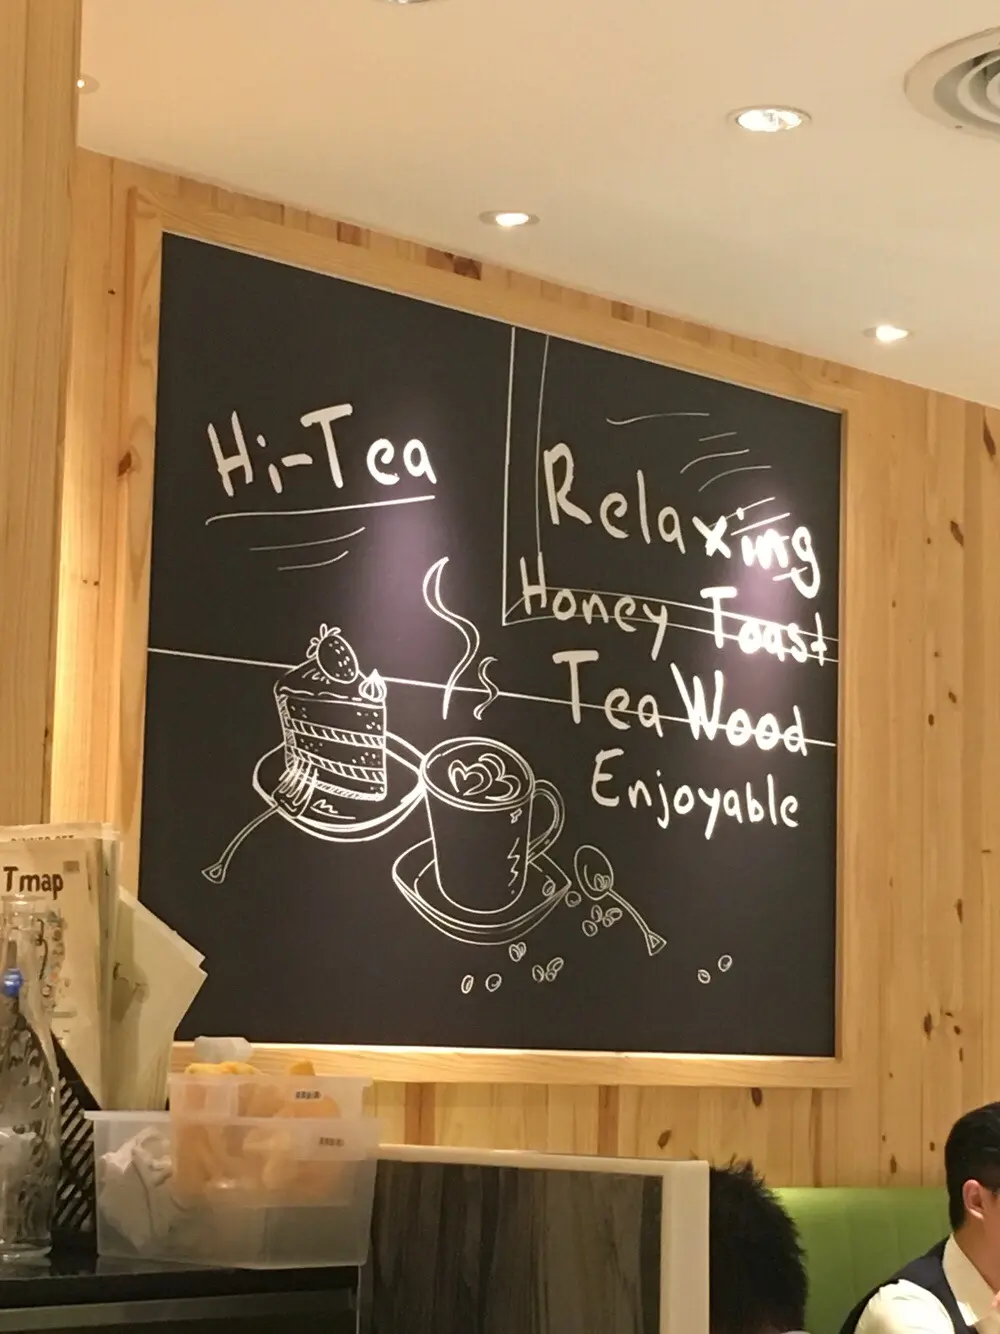 Hi-Tea
Relaxing
Honey Toast
Tea Wood
Enjoyable
Tmap